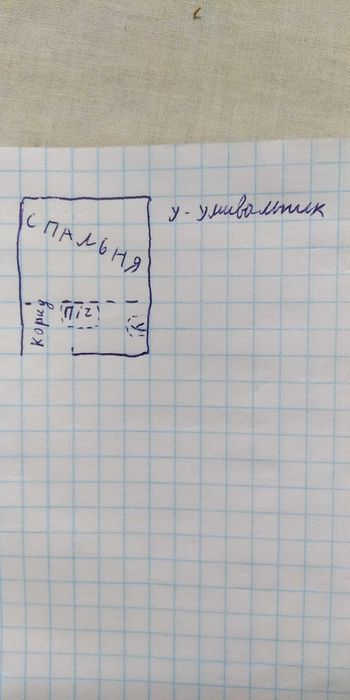 СПАЛЬНЯ
У - умивальник
корид
Піч
У